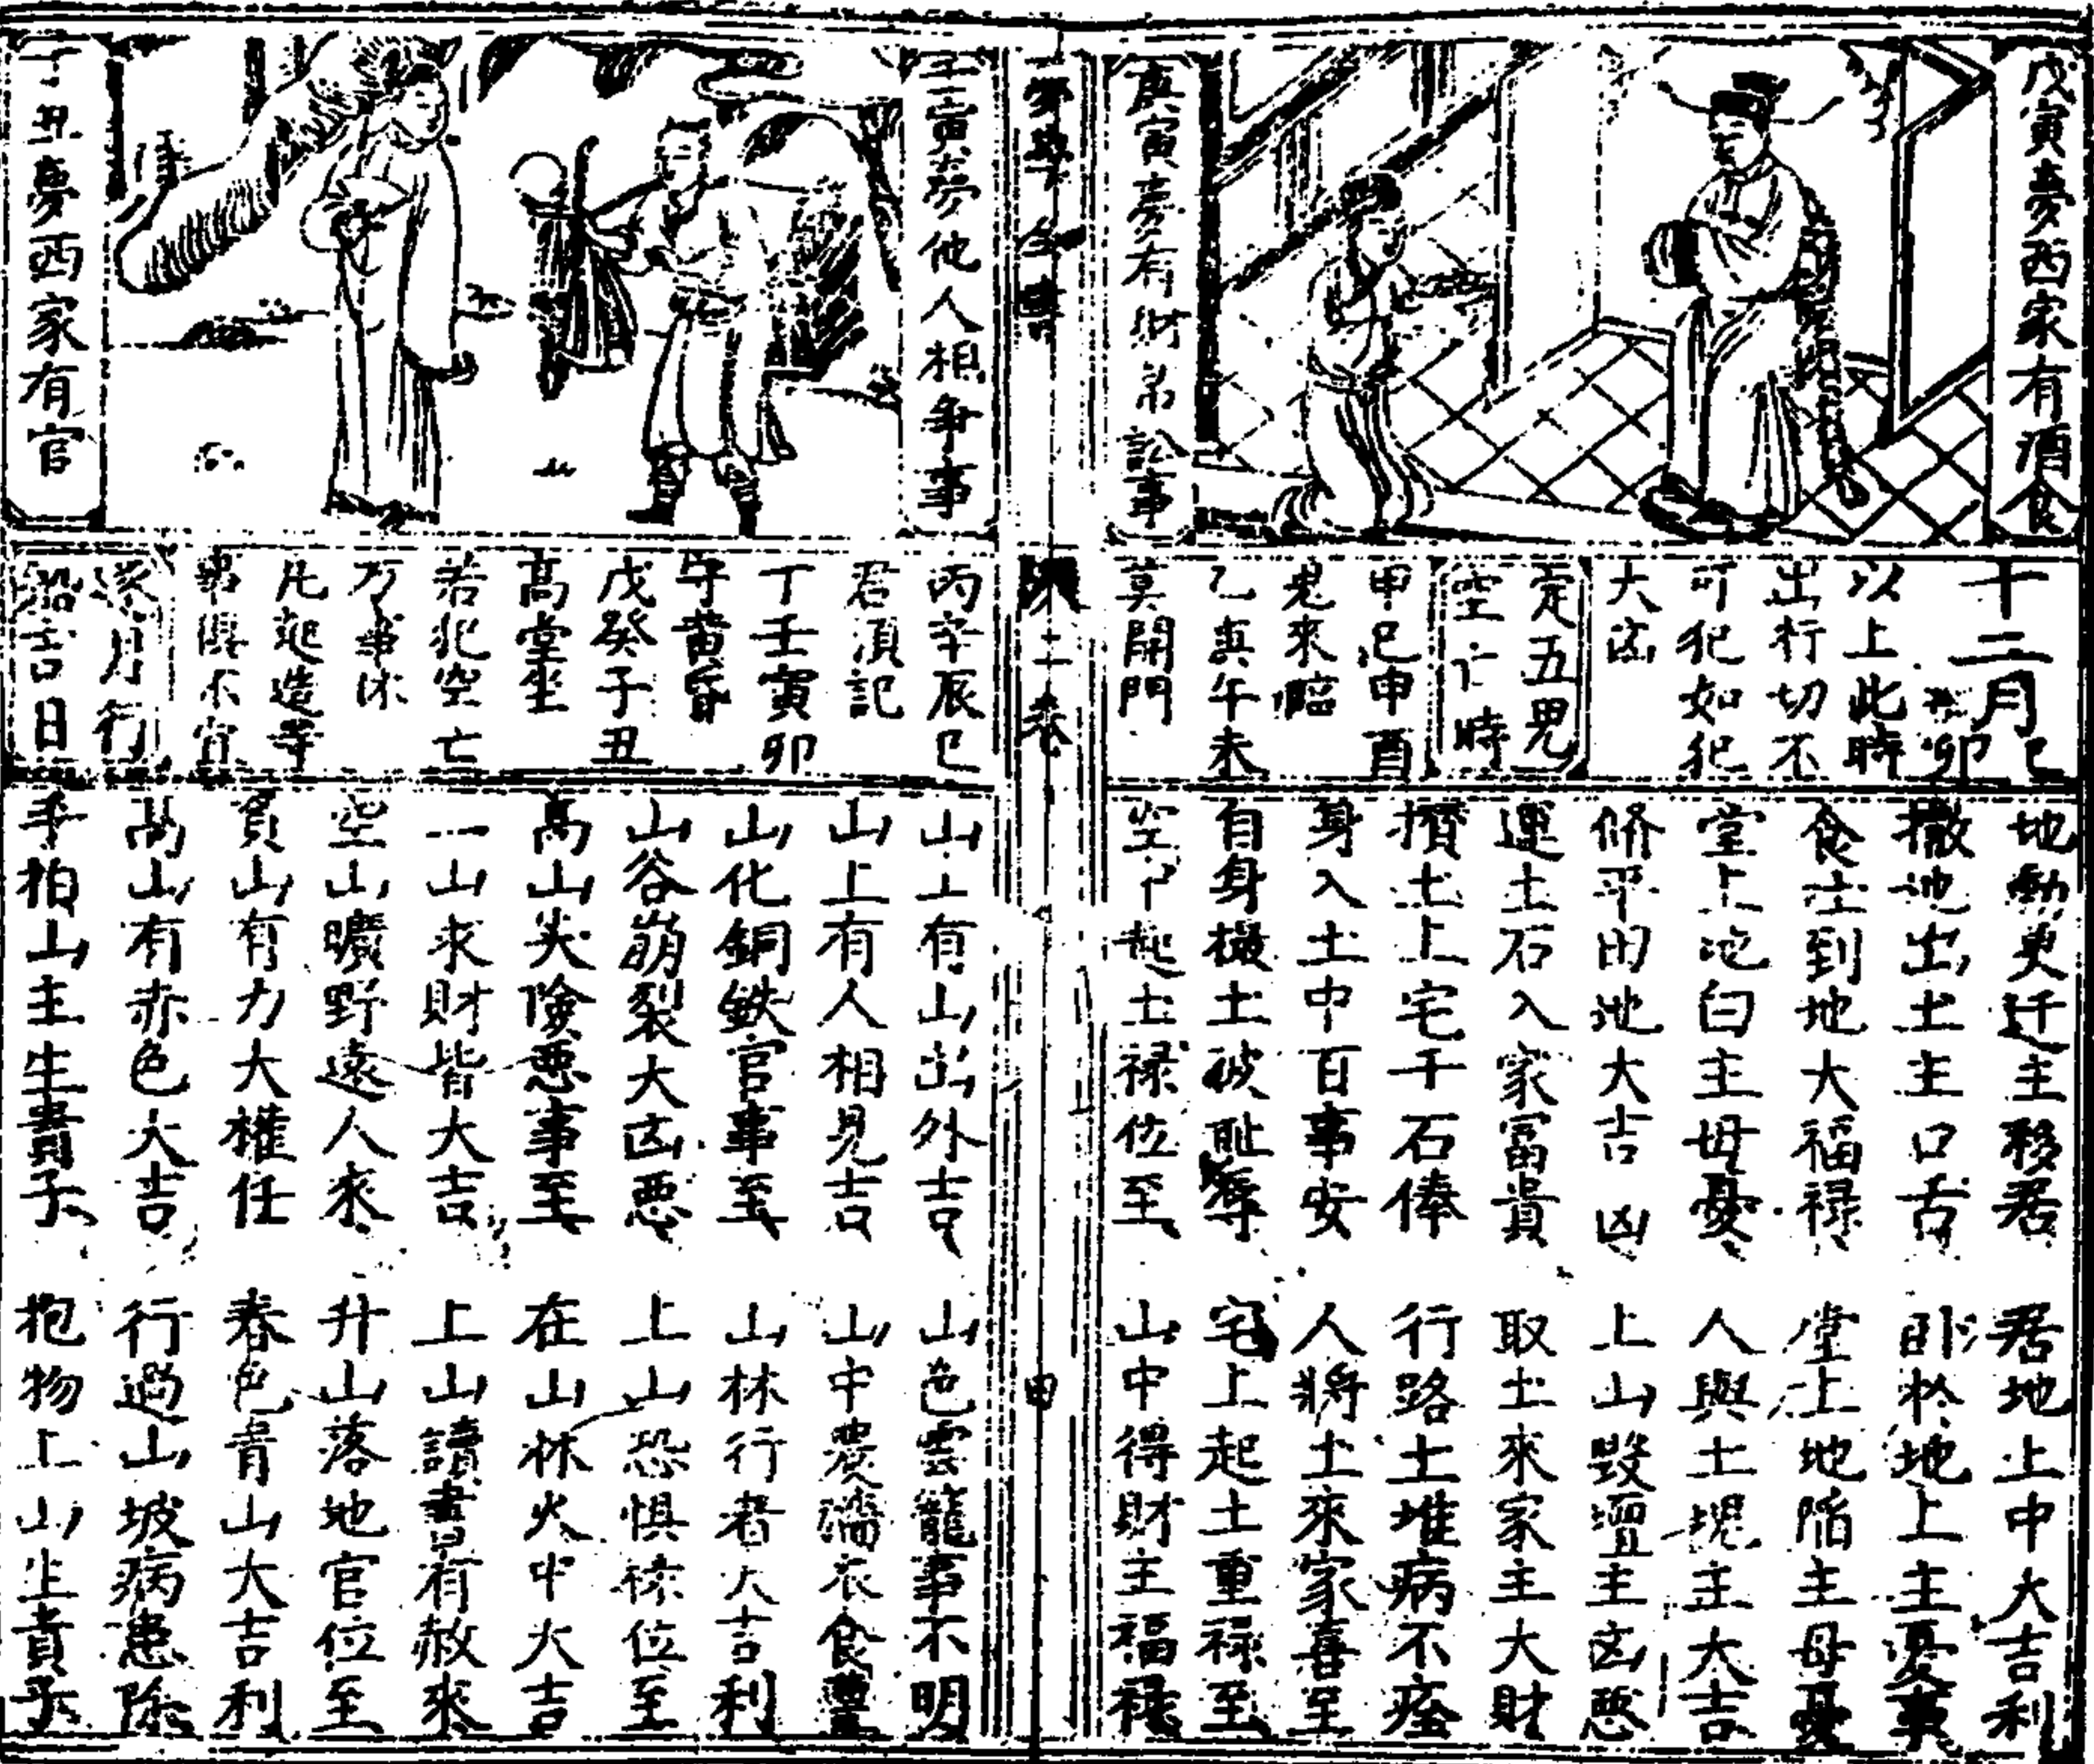 戊寅夢西家有酒食
庚寅夢有財帛訟事
十二月巳卯
以上此時
出行切不
可犯如犯
大凶
定五鬼
空亡時
甲巳申酉
鬼來臨
乙庚午未
莫開門
地動更迁主移居
居地上中大吉利
撒地出土主口舌
卧於地上主憂事
食土到地大福禄
堂上地陷主母憂
堂上地臼主母憂
人與土塊主大吉
脩平田地大吉凶
上山毀壇主凶愍
運土石入家富貴
取土來家主大財
攢土上宅千石俸
行路土堆病不痊
身入土中百事安
人將土來家喜至
自身掇土被耻辱
宅上起土重禄至
空中起土禄位至
山中得財主福禄
夢學全書
卷
壬寅夢他人相爭事
丁丑夢西家有官
丙辛辰巳
君須記
丁壬寅卯
守黄昏
戊癸子丑
高堂坐
若犯空亡
万事休
凡起造等
事俱不宜
逐月行
船吉日
山上有山出外吉
山色雲籠事不明
山上有人相見吉
山中農譸衣食豐
山化銅鉄官事至
山林行者大吉利
山谷崩裂大凶惡
上山恐惧禄位至
高山尖險惡事至
在山林火中大吉
一山求財皆大吉
上山讀書有赦來
空山曠野遠人來
升山落地官位至
負山有力大權任
春色青山大吉利
高山有赤色大吉
行過山坡病患除
手拍山主生貴子
抱物上山生貴子